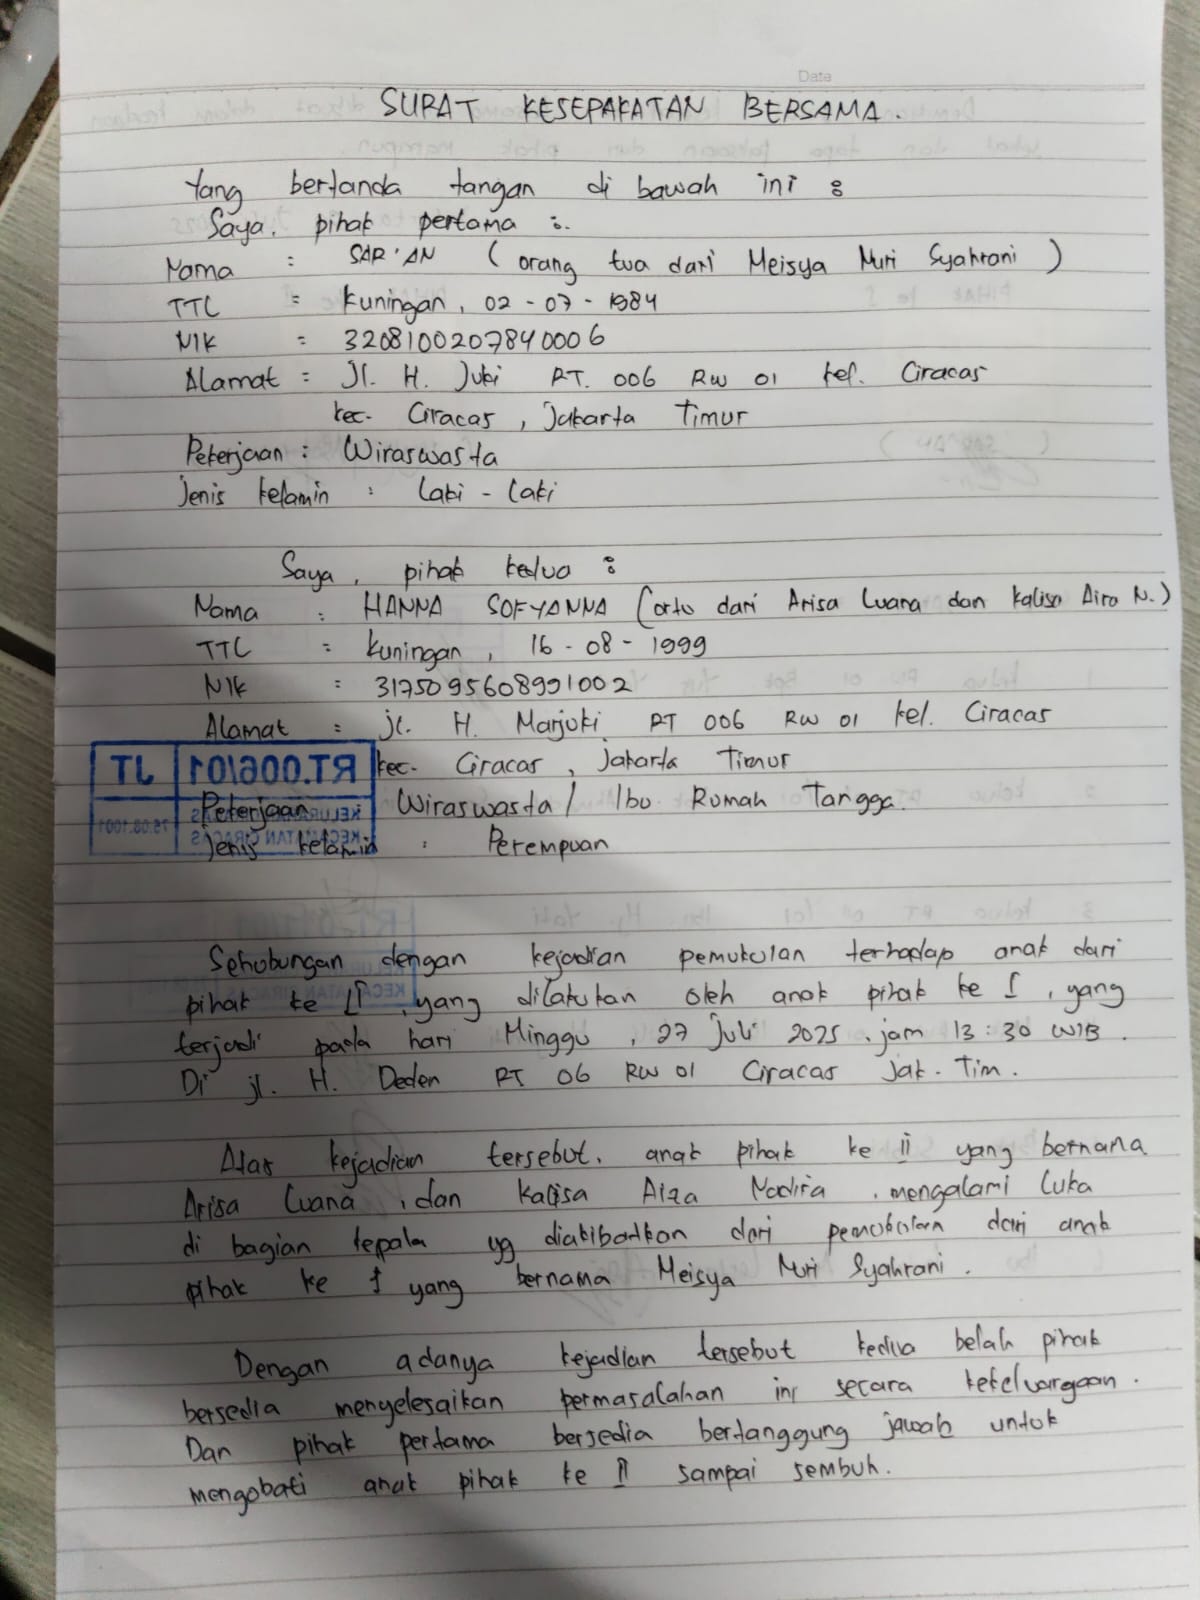 Date
SURAT KESEPAKATAN BERSAMA.
Yang bertanda tangan di bawah ini :
Saya, pihak pertama :.
Nama : SAR'AN ( orang tua dari Meisya Nuri Syahrani )
TTC : Kuningan, 02 - 07 - 1984
NIK : 3208100207840006
Alamat : Jl. H. Juki RT. 006 RW 01 kel. Ciracas
kec. Ciracas, Jakarta Timur
Pekerjaan : Wiraswasta
Jenis kelamin : Laki - Laki
Saya, pihak kedua :
Nama : HANNA SOFYANNA (ortu dari Arisa Luana dan Kalisa Aira N.)
TTL : Kuningan, 16 - 08 - 1999
NIK : 3175095608991002
Alamat : jl. H. Marjuki RT 006 RW 01 kel. Ciracas
kec. Ciracas, Jakarta Timur
RT.006/01 JT
Pekerjaan Wiraswasta / Ibu Rumah Tangga.
KECAMATAN CIRACAS
Jenis kelamin : Perempuan
Sehubungan dengan kejadian pemukulan terhadap anak dari
pihak ke II, yang dilakukan oleh anak pihak ke I, yang
terjadi pada hari Minggu, 27 Juli 2025, jam 13:30 WIB.
Di jl. H. Deden RT 06 RW 01 Ciracas Jak. Tim.
Atas kejadian tersebut, anak pihak ke II yang bernama
Arisa Luana, dan Kalisa Aiza Nadira, mengalami luka
di bagian kepala yg diakibatkan dari pemukulan dari anak
pihak ke I yang bernama Meisya Nuri Syahrani.
Dengan adanya kejadian tersebut kedua belah pihak
bersedia menyelesaikan permasalahan ini secara kekeluargaan.
Dan pihak pertama bersedia bertanggung jawab untuk
mengobati anak pihak ke II sampai sembuh.